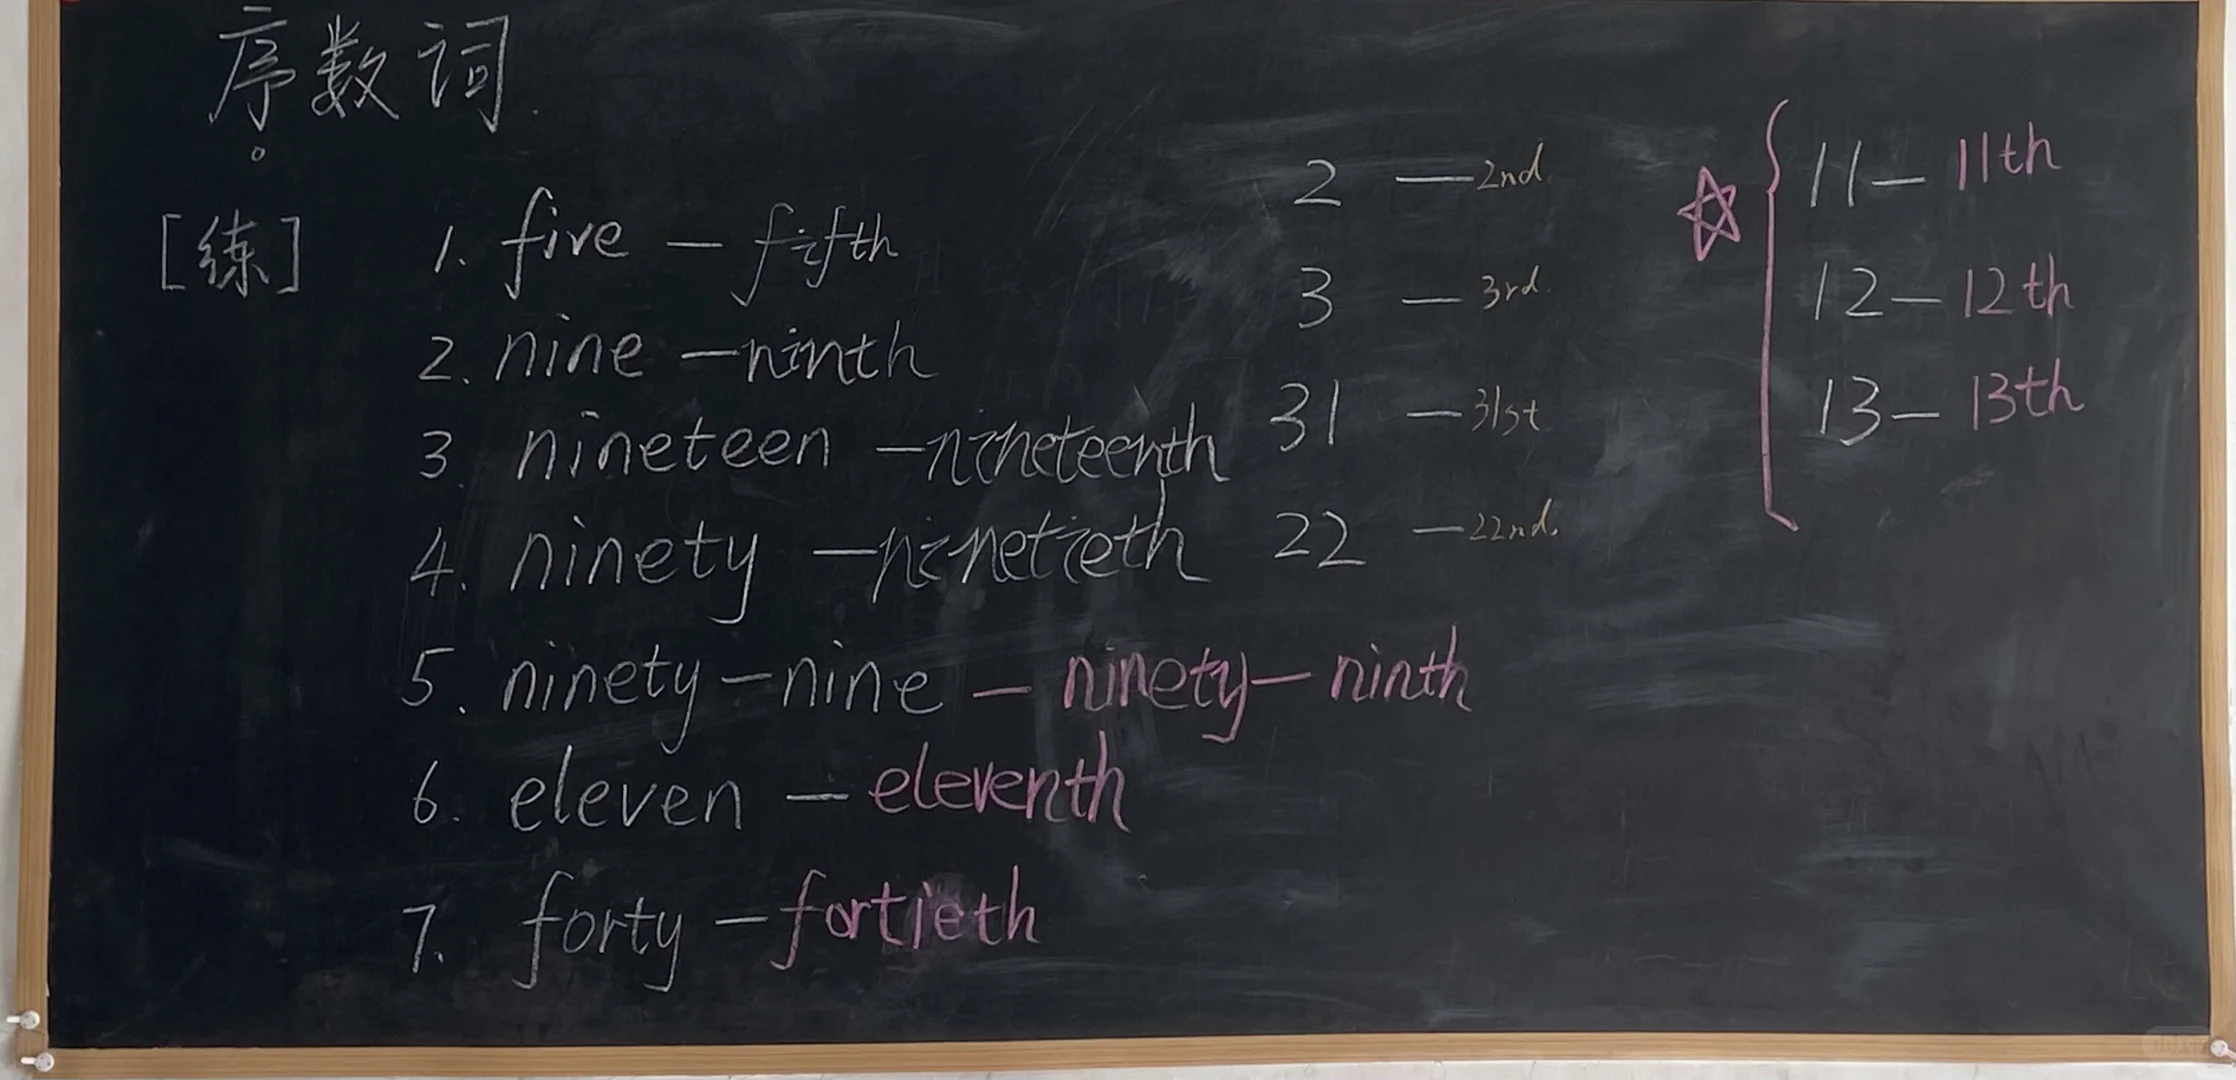 序数词.
[练]
1. five — fifth
2. nine — ninth
3. nineteen — nineteenth
4. ninety — ninetieth
5. ninety — nine — ninety — ninth
6. eleven — eleventh
7. forty — fortieth
2 — 2nd.
3 — 3rd.
31 — 31st
22 — 22nd.
11 — 11th
12 — 12th
13 — 13th